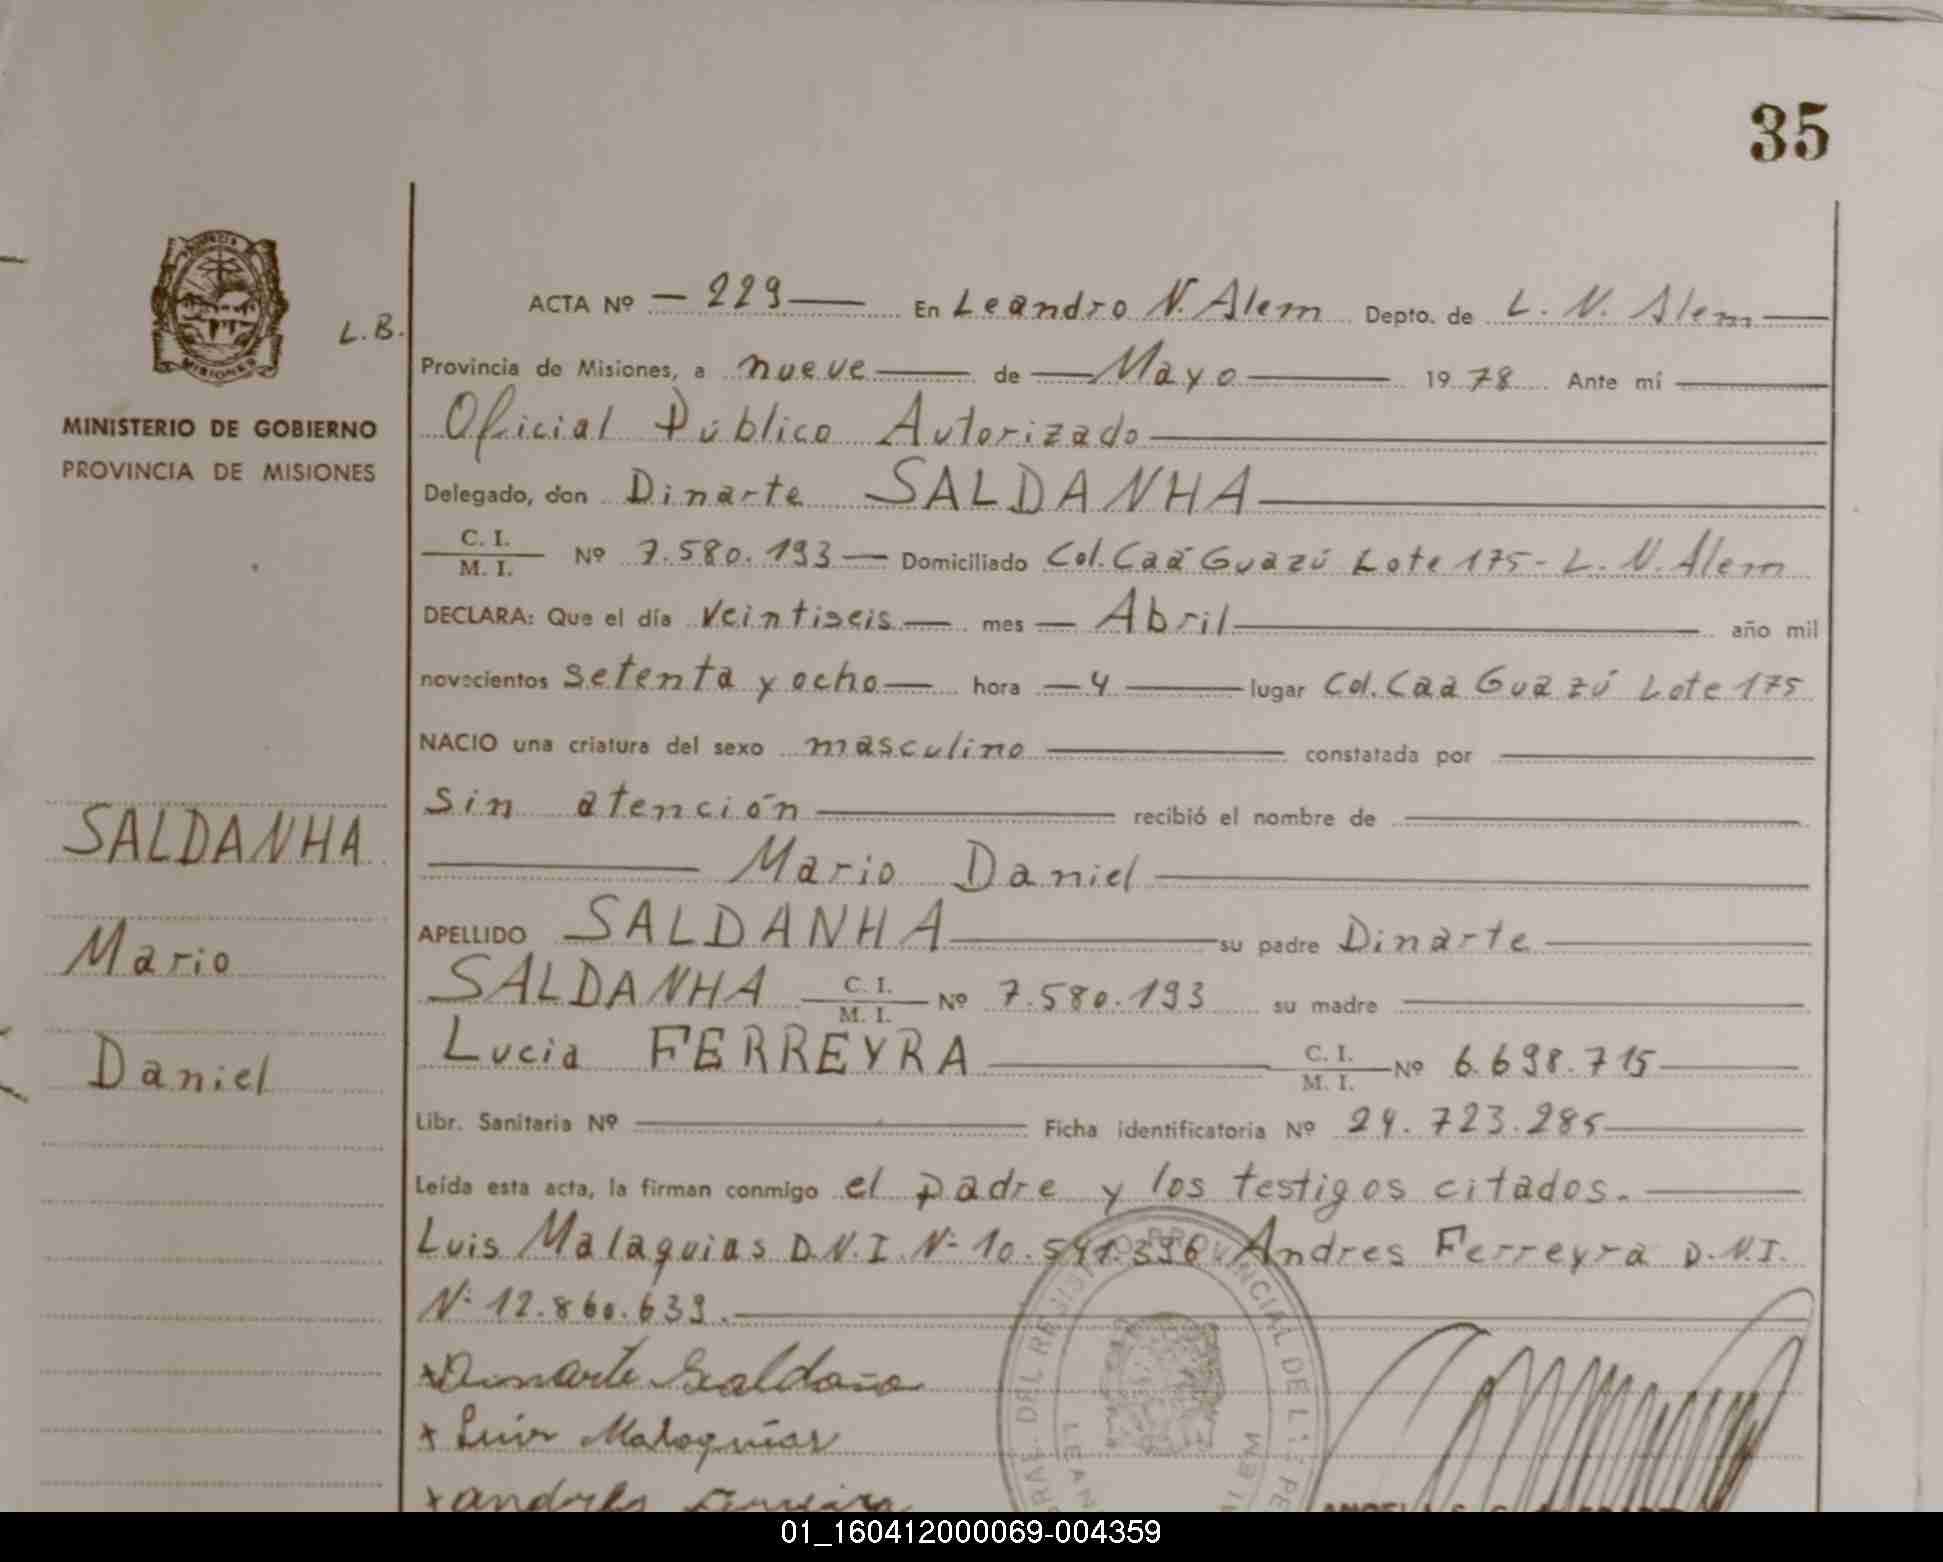 35
L.B.
MINISTERIO DE GOBIERNO
PROVINCIA DE MISIONES
SALDANHA
Mario
Daniel
ACTA Nº — 229 — En Leandro N. Alem Depto. de L. N. Alem —
Provincia de Misiones, a nueve — de — Mayo — 1978 Ante mí —
Oficial Público Autorizado —
Delegado, don Dinarte SALDANHA —
C. I. / M. I. Nº 7.580.193 — Domiciliado Col. Caá Guazú Lote 175 - L. N. Alem
DECLARA: Que el día Veintiseis — mes — Abril — año mil
novecientos setenta y ocho — hora — 4 — lugar Col. Caa Guazú Lote 175
NACIO una criatura del sexo masculino — constatada por —
sin atención — recibió el nombre de —
— Mario Daniel —
APELLIDO SALDANHA — su padre Dinarte —
SALDANHA C. I. / M. I. Nº 7.580.193 su madre —
Lucia FERREYRA — C. I. / M. I. Nº 6.698.715 —
Libr. Sanitaria Nº — Ficha identificatoria Nº 24.723.285 —
Leída esta acta, la firman conmigo el padre y los testigos citados. —
Luis Malaquias D.N.I. Nº 10.541.396 Andres Ferreyra D.N.I.
Nº 12.860.639. —
x Dinarte Saldaña
x Luis Malaquias
x andres
01_160412000069-004359